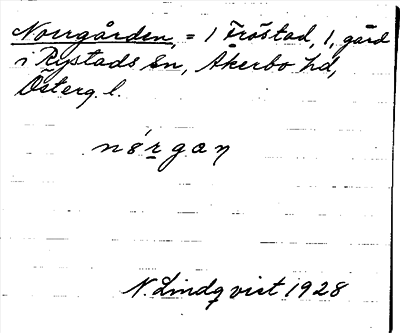 Norrgården, = 1 Fröstad, 1, gård
i Rystads sn, Åkerbo hd,
Österg. l.
nórgan
N. Lindqvist 1928